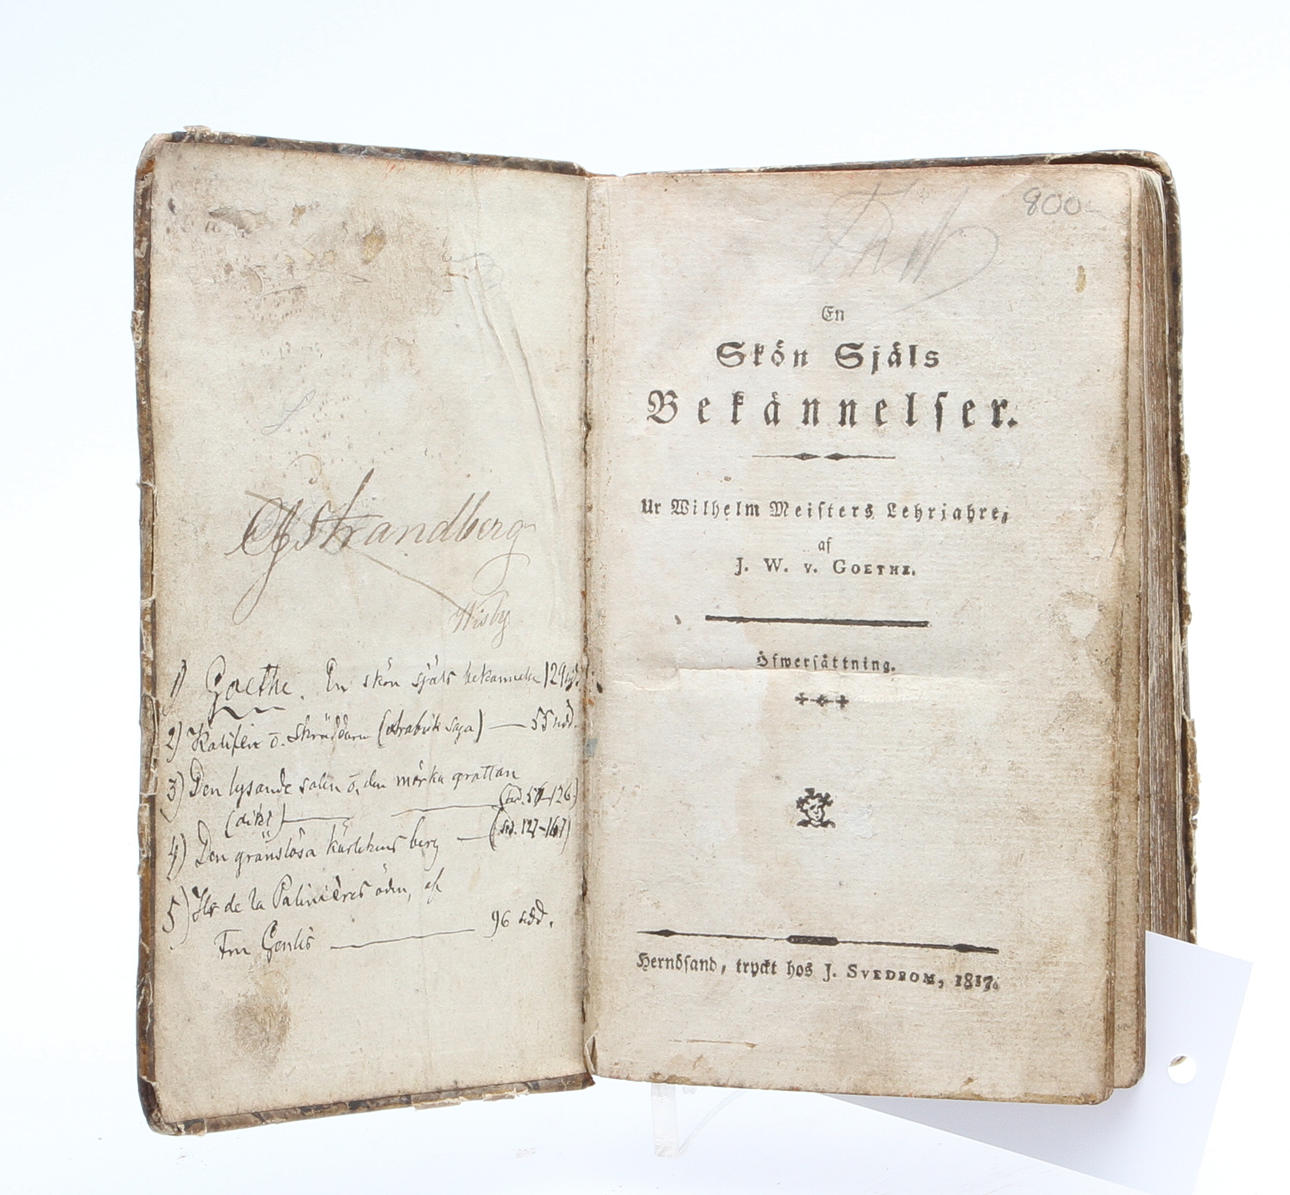 Strandberg
Wisby
1) Goethe. En skön själs bekännelser 129
2) Kalifen o. Skräddaren (Arabisk saga) — 55 sidd.
3) Den lysande salen o. den mörka grottan
(dikt) — (sid. 57-126)
4) Den gränslösa kärlekens berg — (sid. 127-167)
5) Hr de la Palinières öden, af
Fru Genlis — 96 sidd.
800
En
Skön Själs
Bekännelser.
Ur Wilhelm Meisters Lehrjahre,
af
J. W. v. GOETHE.
Öfwersättning.
Hernösand, tryckt hos J. SVEDBOM, 1817.